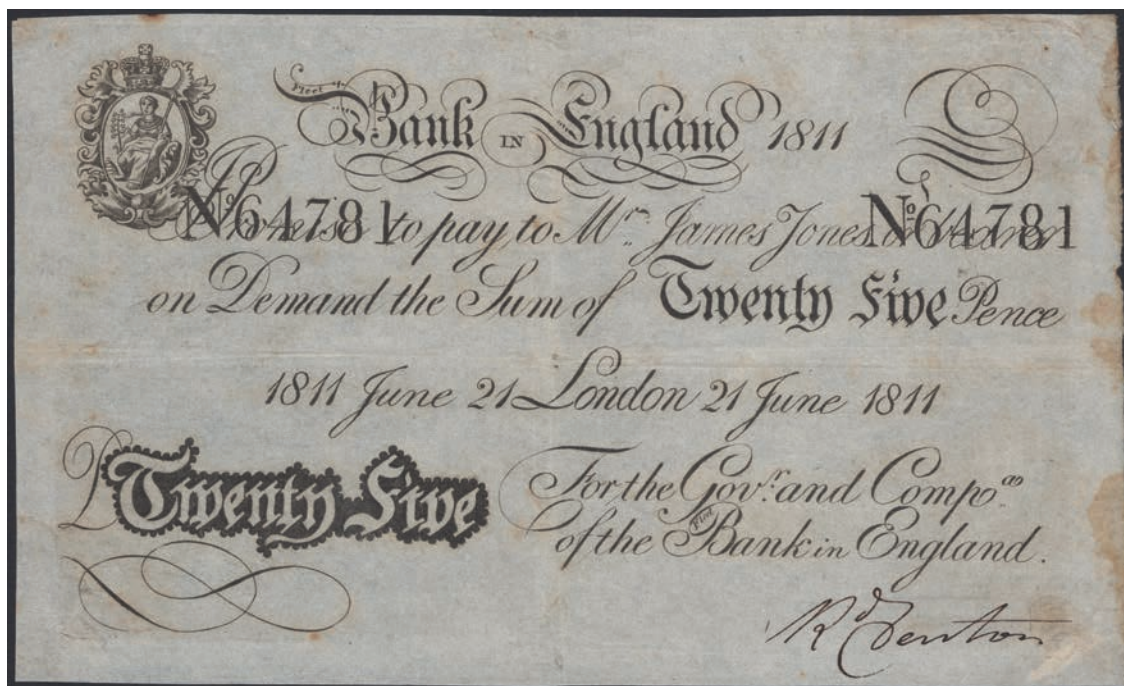 Fleet
Bank IN England 1811
I Promise to pay to Mr. James Jones or Bearer
No 64781 No 64781
on Demand the Sum of Twenty Five Pence
1811 June 21 London 21 June 1811
£ Twenty Five
For the Govr. and Compa.
of the Fleet Bank in England.
Rd Fenton